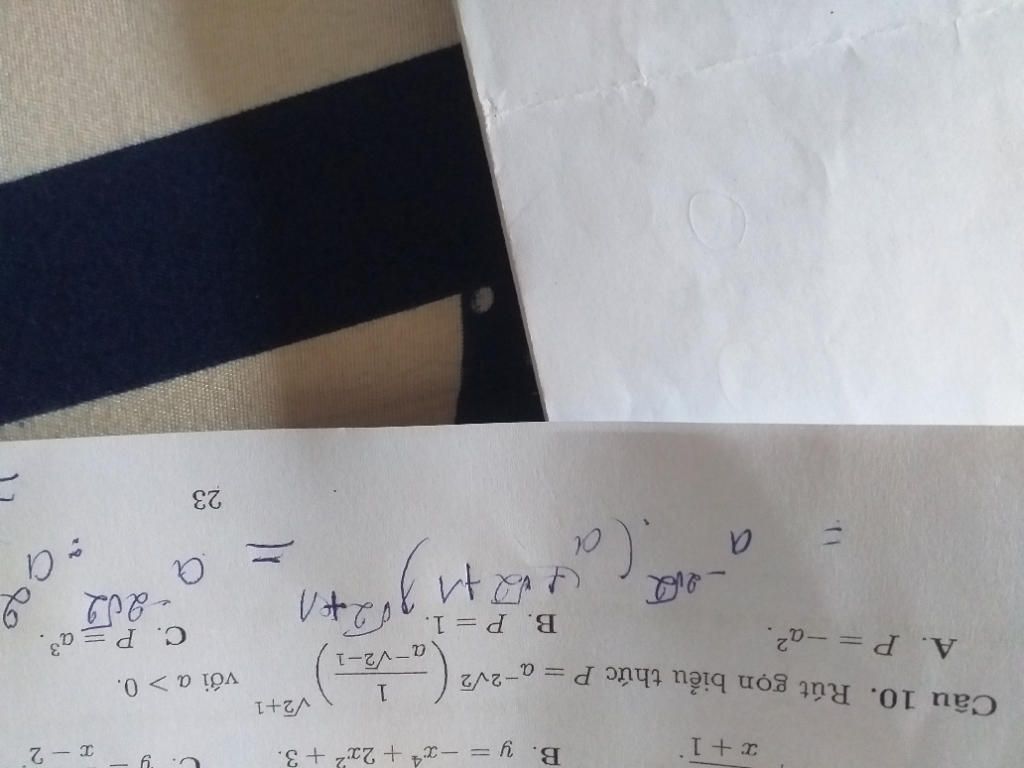 x + 1. B. y = −x⁴ + 2x² + 3. C. y = x − 2
Câu 10. Rút gọn biểu thức P = a^(−2√2) (1/a^(−√2−1))^(√2+1) với a > 0.
A. P = −a². B. P = 1. C. P = a³.
= a^(−2√2) . (a^(√2+1))^(√2+1) = a^(−2√2) . a^2
23